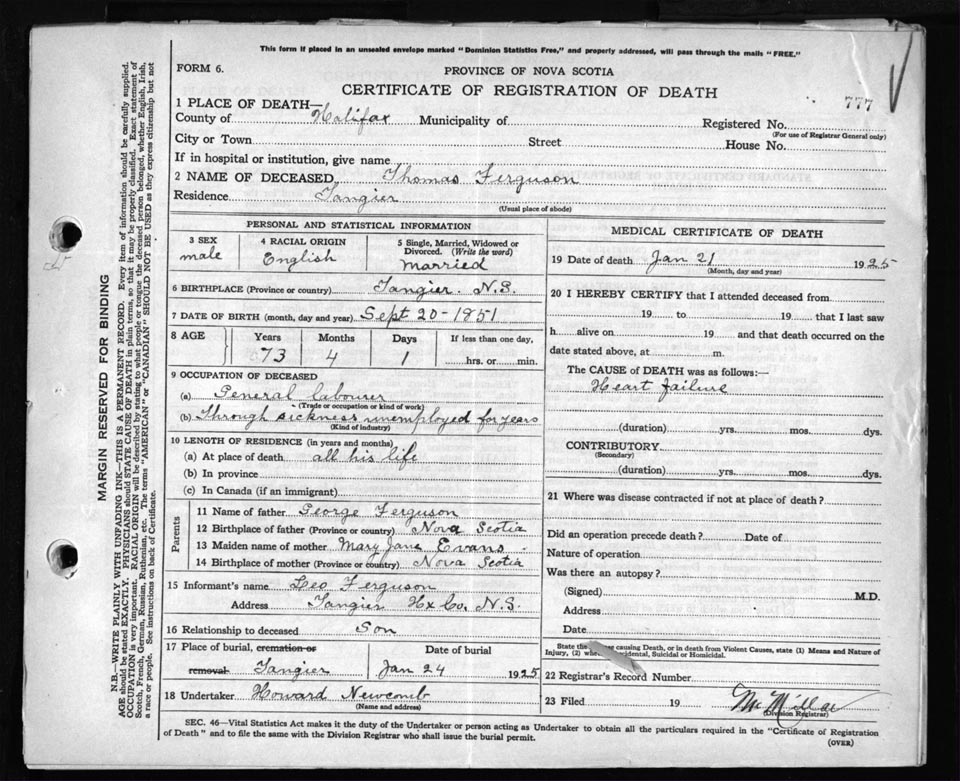 This form if placed in an unsealed envelope marked "Dominion Statistics Free," and properly addressed, will pass through the mails "FREE."
FORM 6.
PROVINCE OF NOVA SCOTIA
CERTIFICATE OF REGISTRATION OF DEATH
777
1 PLACE OF DEATH—
County of Halifax Municipality of Registered No.
(For use of Registrar General only)
City or Town Street House No.
If in hospital or institution, give name
2 NAME OF DECEASED Thomas Ferguson
Residence Tangier
(Usual place of abode)
PERSONAL AND STATISTICAL INFORMATION
3 SEX
male
4 RACIAL ORIGIN
English
5 Single, Married, Widowed or
Divorced. (Write the word)
Married
6 BIRTHPLACE (Province or country) Tangier. N.S.
7 DATE OF BIRTH (month, day and year) Sept 20-1851
8 AGE
Years Months Days If less than one day,
73 4 1 hrs. or min.
9 OCCUPATION OF DECEASED
(a) General labourer
(Trade or occupation or kind of work)
(b) Through sickness unemployed for years
(Kind of industry)
10 LENGTH OF RESIDENCE (in years and months)
(a) At place of death all his life
(b) In province
(c) In Canada (if an immigrant)
Parents
11 Name of father George Ferguson
12 Birthplace of father (Province or country) Nova Scotia
13 Maiden name of mother Mary Jane Evans
14 Birthplace of mother (Province or country) Nova Scotia
15 Informant's name Leo Ferguson
Address Tangier Hx Co. N.S.
16 Relationship to deceased Son
17 Place of burial, cremation or Date of burial
removal Tangier Jan 24 1925
18 Undertaker Howard Newcomb
(Name and address)
MEDICAL CERTIFICATE OF DEATH
19 Date of death Jan 21 1925
(Month, day and year)
20 I HEREBY CERTIFY that I attended deceased from
19 to 19 that I last saw
h alive on 19 and that death occurred on the
date stated above, at m.
The CAUSE of DEATH was as follows:—
Heart failure
(duration) yrs. mos. dys.
CONTRIBUTORY
(Secondary)
(duration) yrs. mos. dys.
21 Where was disease contracted if not at place of death?
Did an operation precede death? Date of
Nature of operation
Was there an autopsy?
(Signed) M.D.
Address
Date
State the causing Death, or in death from Violent Causes, state (1) Means and Nature of
Injury, (2) Accidental, Suicidal or Homicidal.
22 Registrar's Record Number
23 Filed 19
(Division Registrar)
SEC. 46—Vital Statistics Act makes it the duty of the Undertaker or person acting as Undertaker to obtain all the particulars required in the "Certificate of Registration
of Death" and to file the same with the Division Registrar who shall issue the burial permit.
(OVER)
MARGIN RESERVED FOR BINDING
N.B.—WRITE PLAINLY WITH UNFADING INK—THIS IS A PERMANENT RECORD. Every item of information should be carefully supplied.
AGE should be stated EXACTLY. PHYSICIANS should STATE CAUSE OF DEATH in plain terms, so that it may be properly classified. Exact statement of
OCCUPATION is very important. RACIAL ORIGIN will be described by stating to what people or tongue the deceased person belonged, whether English, Irish,
Scotch, French, German, Russian, Ruthenian, etc. The terms "AMERICAN" or "CANADIAN" SHOULD NOT BE USED as they express citizenship but not
a race or people. See instructions on back of Certificate.